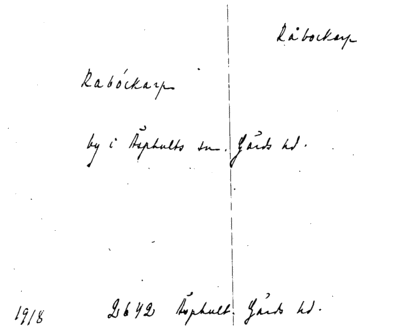 Råbockarp
Rabóckarp
by i Äsphults sn. Gärds hd.
1918 2642 Äsphult. Gärds hd.